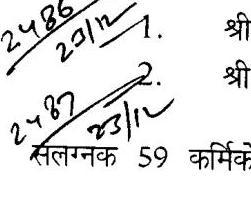 2486
23/12 1. श्री
2487 2. श्री
23/12
सलग्नक 59 कर्मिको